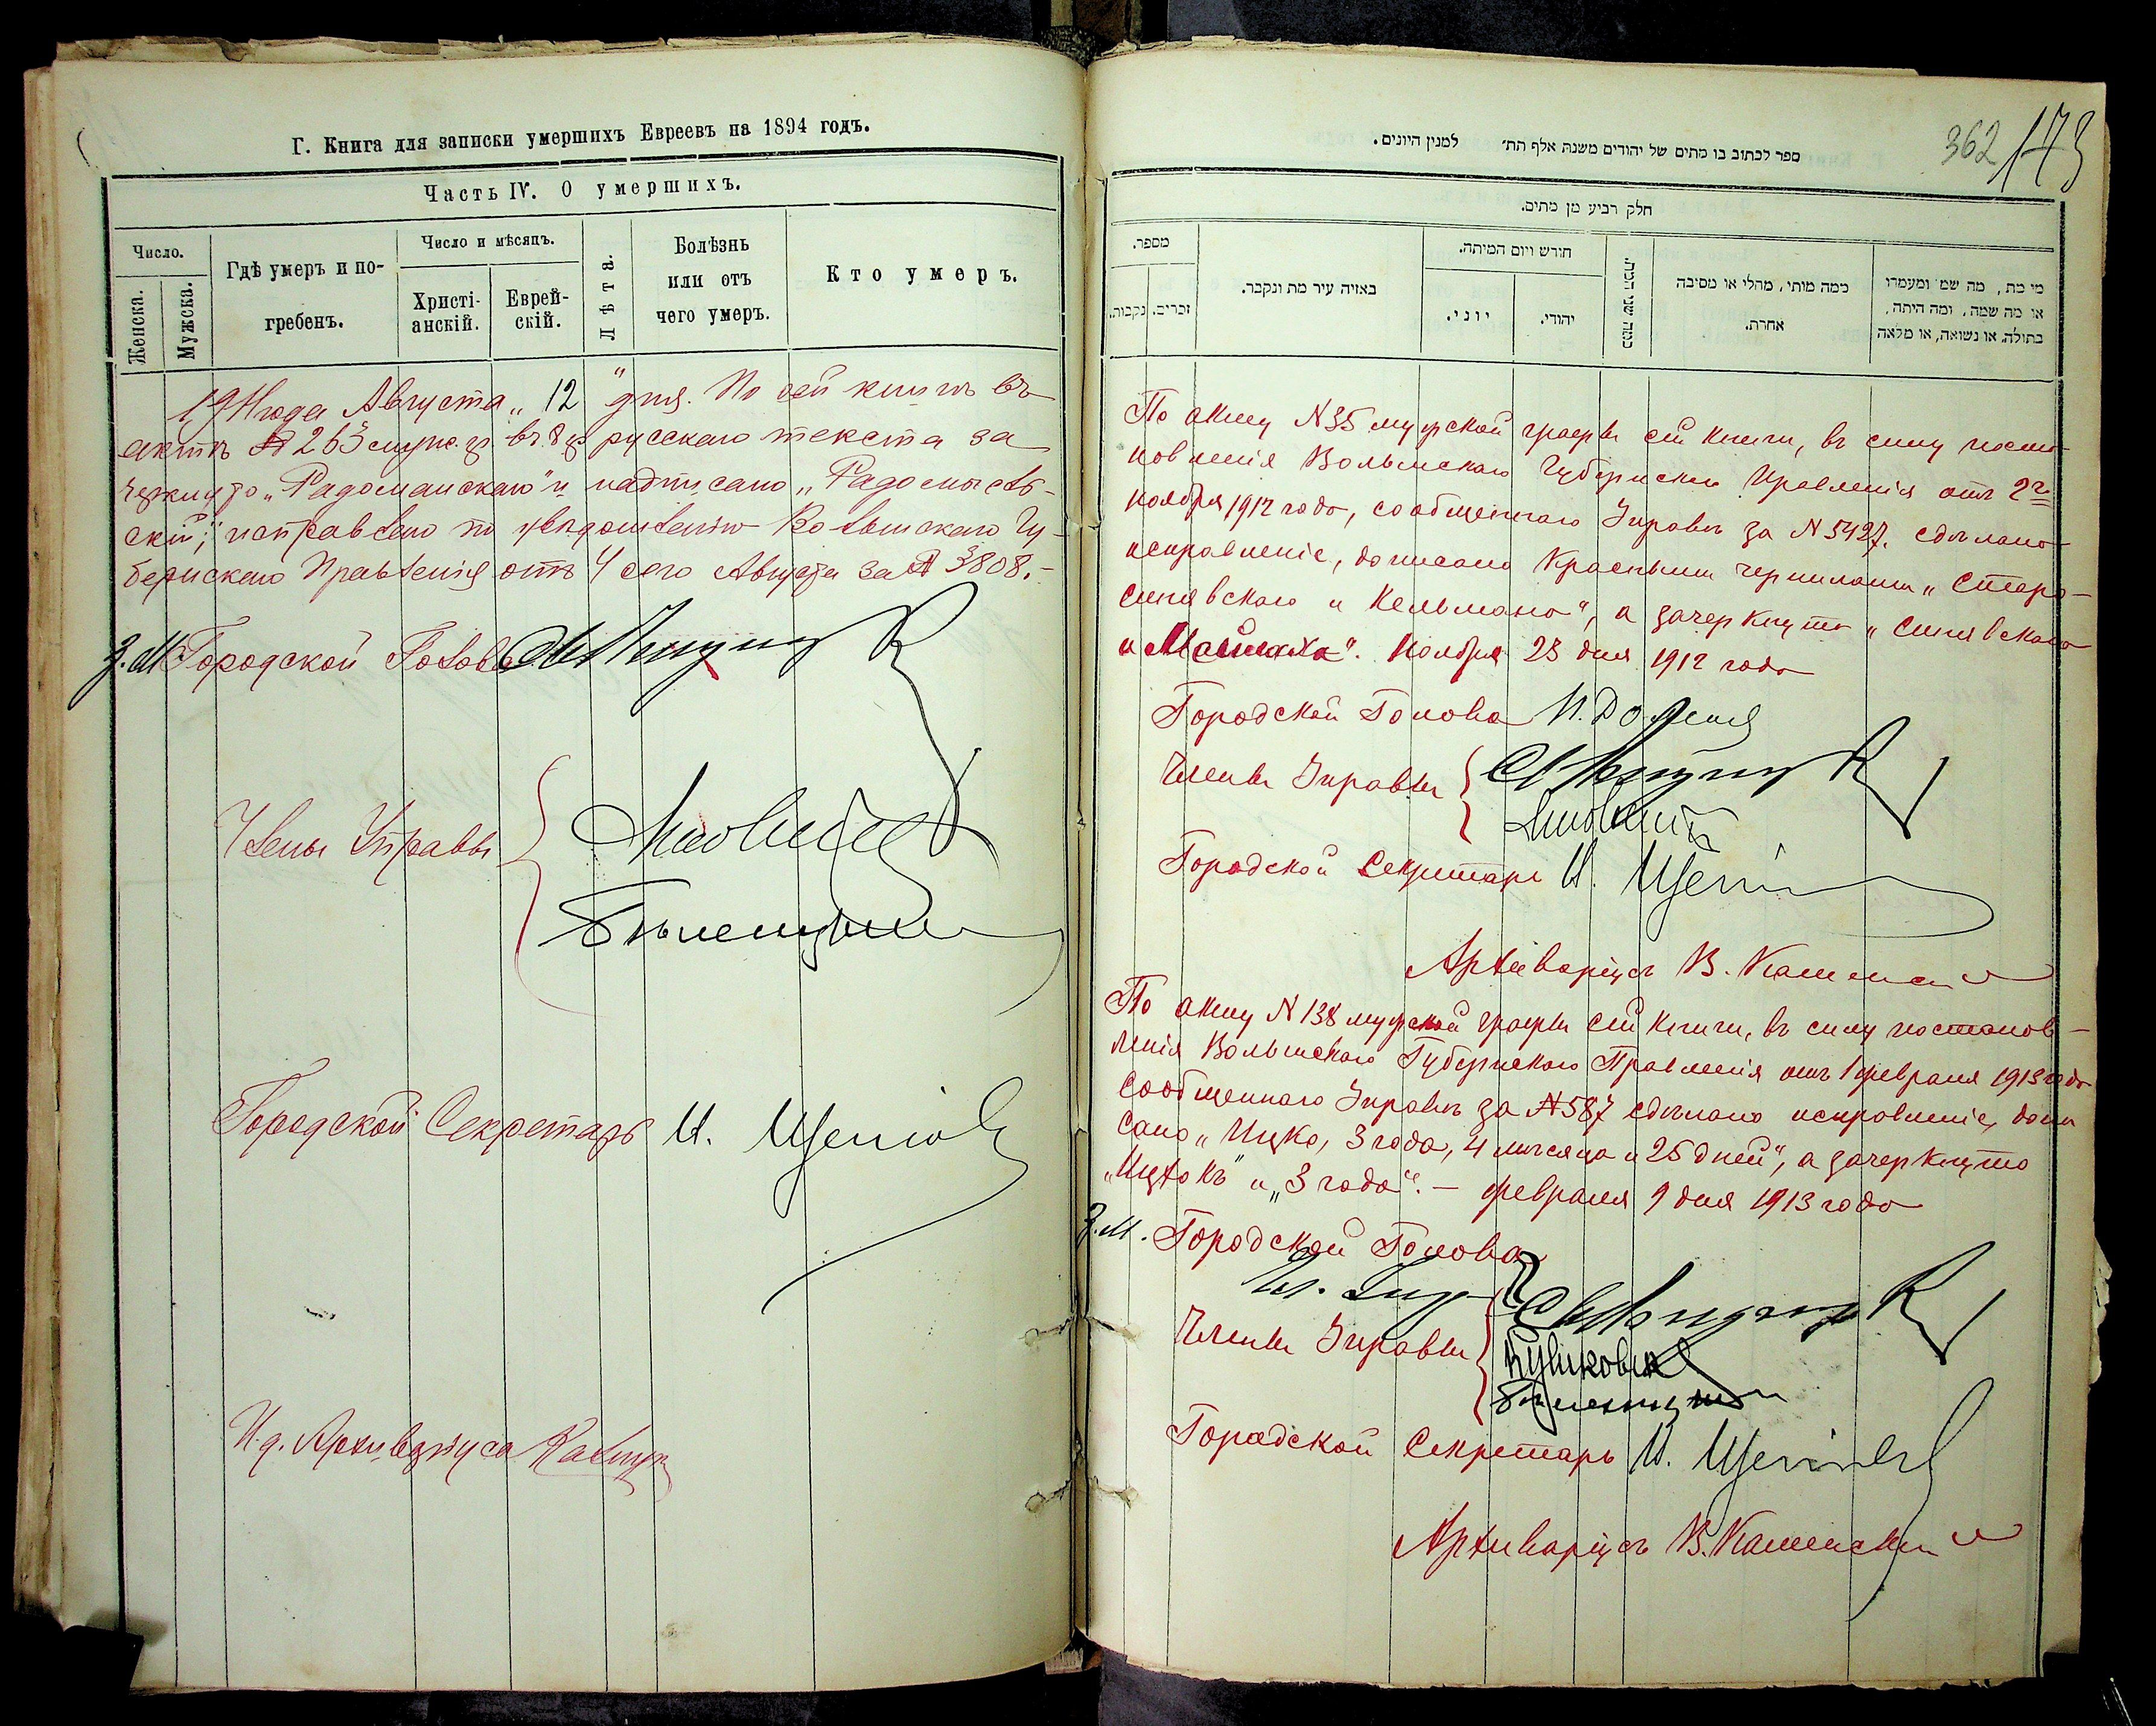 Г. Книга для записки умершихъ Евреевъ на 1894 годъ.
Часть IV. О умершихъ.
Число.
Женска.
Мужска.
Гдѣ умеръ и по-
гребенъ.
Число и мѣсяцъ.
Христі-
анскій.
Еврей-
скій.
Лѣта.
Болѣзнь
или отъ
чего умеръ.
Кто умеръ.
1911 года Августа „12" дня. По сей книгѣ въ
актѣ № 263 въ 8 гр русскаго текста за
черкнуто „Радоманскаго" и надписано „Радомысль-
скій"; исправлено по увѣдомленію Волынскаго Гу-
бернскаго Правленія отъ 4 сего Августа за № 3808.-
З. М. Городской Голова
Члены Управы
Городской Секретарь И.
И. д. Архиваріуса
362 173
ספר לכתוב בו מתים של יהודים משנת אלף תת׳ למנין היונים.
חלק רביע מן מתים.
מספר.
נקבות.
זכרים.
באיזה עיר מת ונקבר.
חודש ויום המיתה.
יוני.
יהודי.
כמה שני
כמה מותי, מחלי או מסיבה
אחרת.
מי מת, מה שמו ומעמדו
או מה שמה, ומה היתה,
בתולה, או נשואה, או
По акту № 35 мужской графы сей книги, въ силу поста-
новленія Волынскаго Губернскаго Правленія отъ 2го
ноября 1912 года, сообщеннаго Управѣ за № 5427, сдѣлано
исправленіе, дописано красными чернилами „Старо-
синявскаго и Кельмана", а зачеркнуто „Синявскаго
и". Ноября 23 дня 1912 года
Городской Голова
Члены Управы
Городской Секретарь И.
Архиваріусъ В. Каменскій
По акту № 138 мужской графы сей книги, въ силу постанов-
ленія Волынскаго Губернскаго Правленія отъ 1 февраля 1913 года
сообщеннаго Управѣ за № 587 сдѣлано исправленіе, допи
сано „Ицко, 3 года, 4 мѣсяца и 25 дней", а зачеркнуто
„Ицхокъ" и „3 года". - февраля 9 дня 1913 года
З. М. Городской Голова
Члены Управы
Городской Секретарь И.
Архиваріусъ В. Каменскій